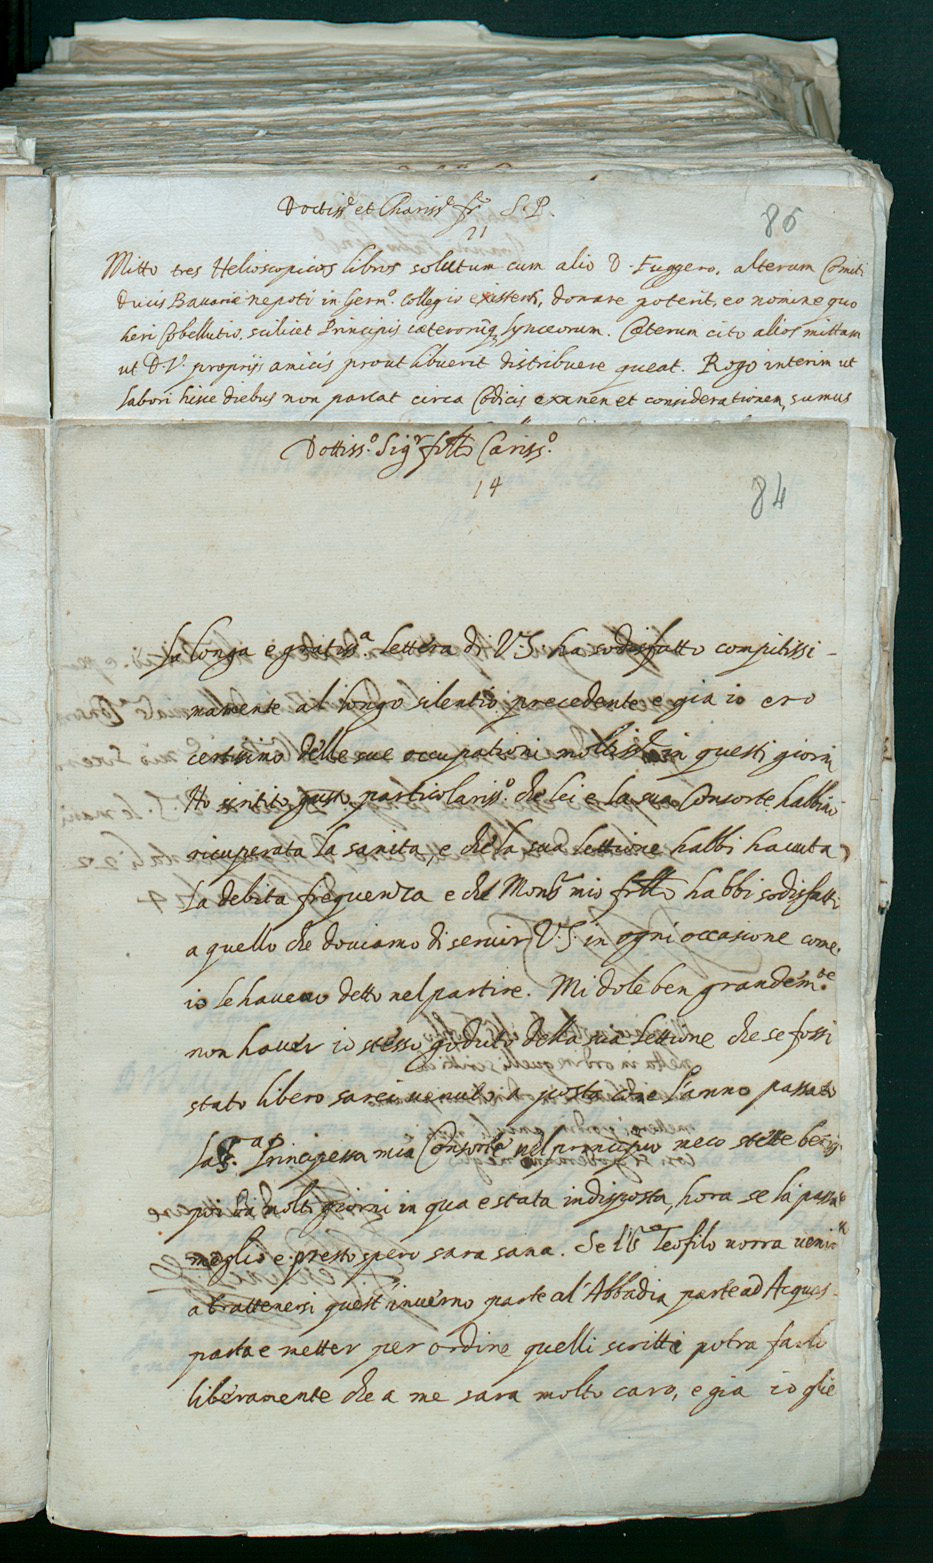 Doctiss.e et Chariss.e fr. S. P.
86
21
Mitto tres Helioscopicos libros solutum cum alio D. Fuggero, alterum Comiti
Ducis Bavariæ nepoti in Germ.o collegio existenti, donare poterit, eo nomine quo
heri Cobellutio, scilicet Principis cæterorumq. Lynceorum. Cæterum cito alios mittam
ut D. V. proprijs amicis prout libuerit distribuere queat. Rogo interim ut
labori hisce diebus non parcat circa Codicis examen et considerationem, sumus
Dottiss.o Sig.r fr̃llo Cariss.o
14
84
La longa e gratiss.a lettera di V.S. ha sodisfatto compitissi-
mamente al longo silentio precedente e gia io ero
certissimo delle sue occupationi in questi giorni
Ho sentito gusto particolariss.o che lei e la sua Consorte habbino
ricuperata la sanita, e che la sua lettione habbi havuta
la debita frequenza e che Mons.r mio fr̃llo habbi sodisfatto
a quello che doviamo di servir V.S. in ogni occasione come
io le havevo detto nel partire. Mi dole ben grandem.te
non haver io stesso goduto della sua lettione che se fossi
stato libero sarei venuto a posta come l'anno passato
La S.ra Principessa mia Consorte nel principio meco stette ben
poi da molti giorni in qua e stata indisposta, hora se la passa
meglio e presto spero sara sana. Se il S.r Teofilo vorra venir
a trattenersi quest'inverno parte al'Abbadia parte ad Acquas-
parta e metter per ordine quelli scritti potra farlo
liberamente che a me sara molto caro, e gia io glie